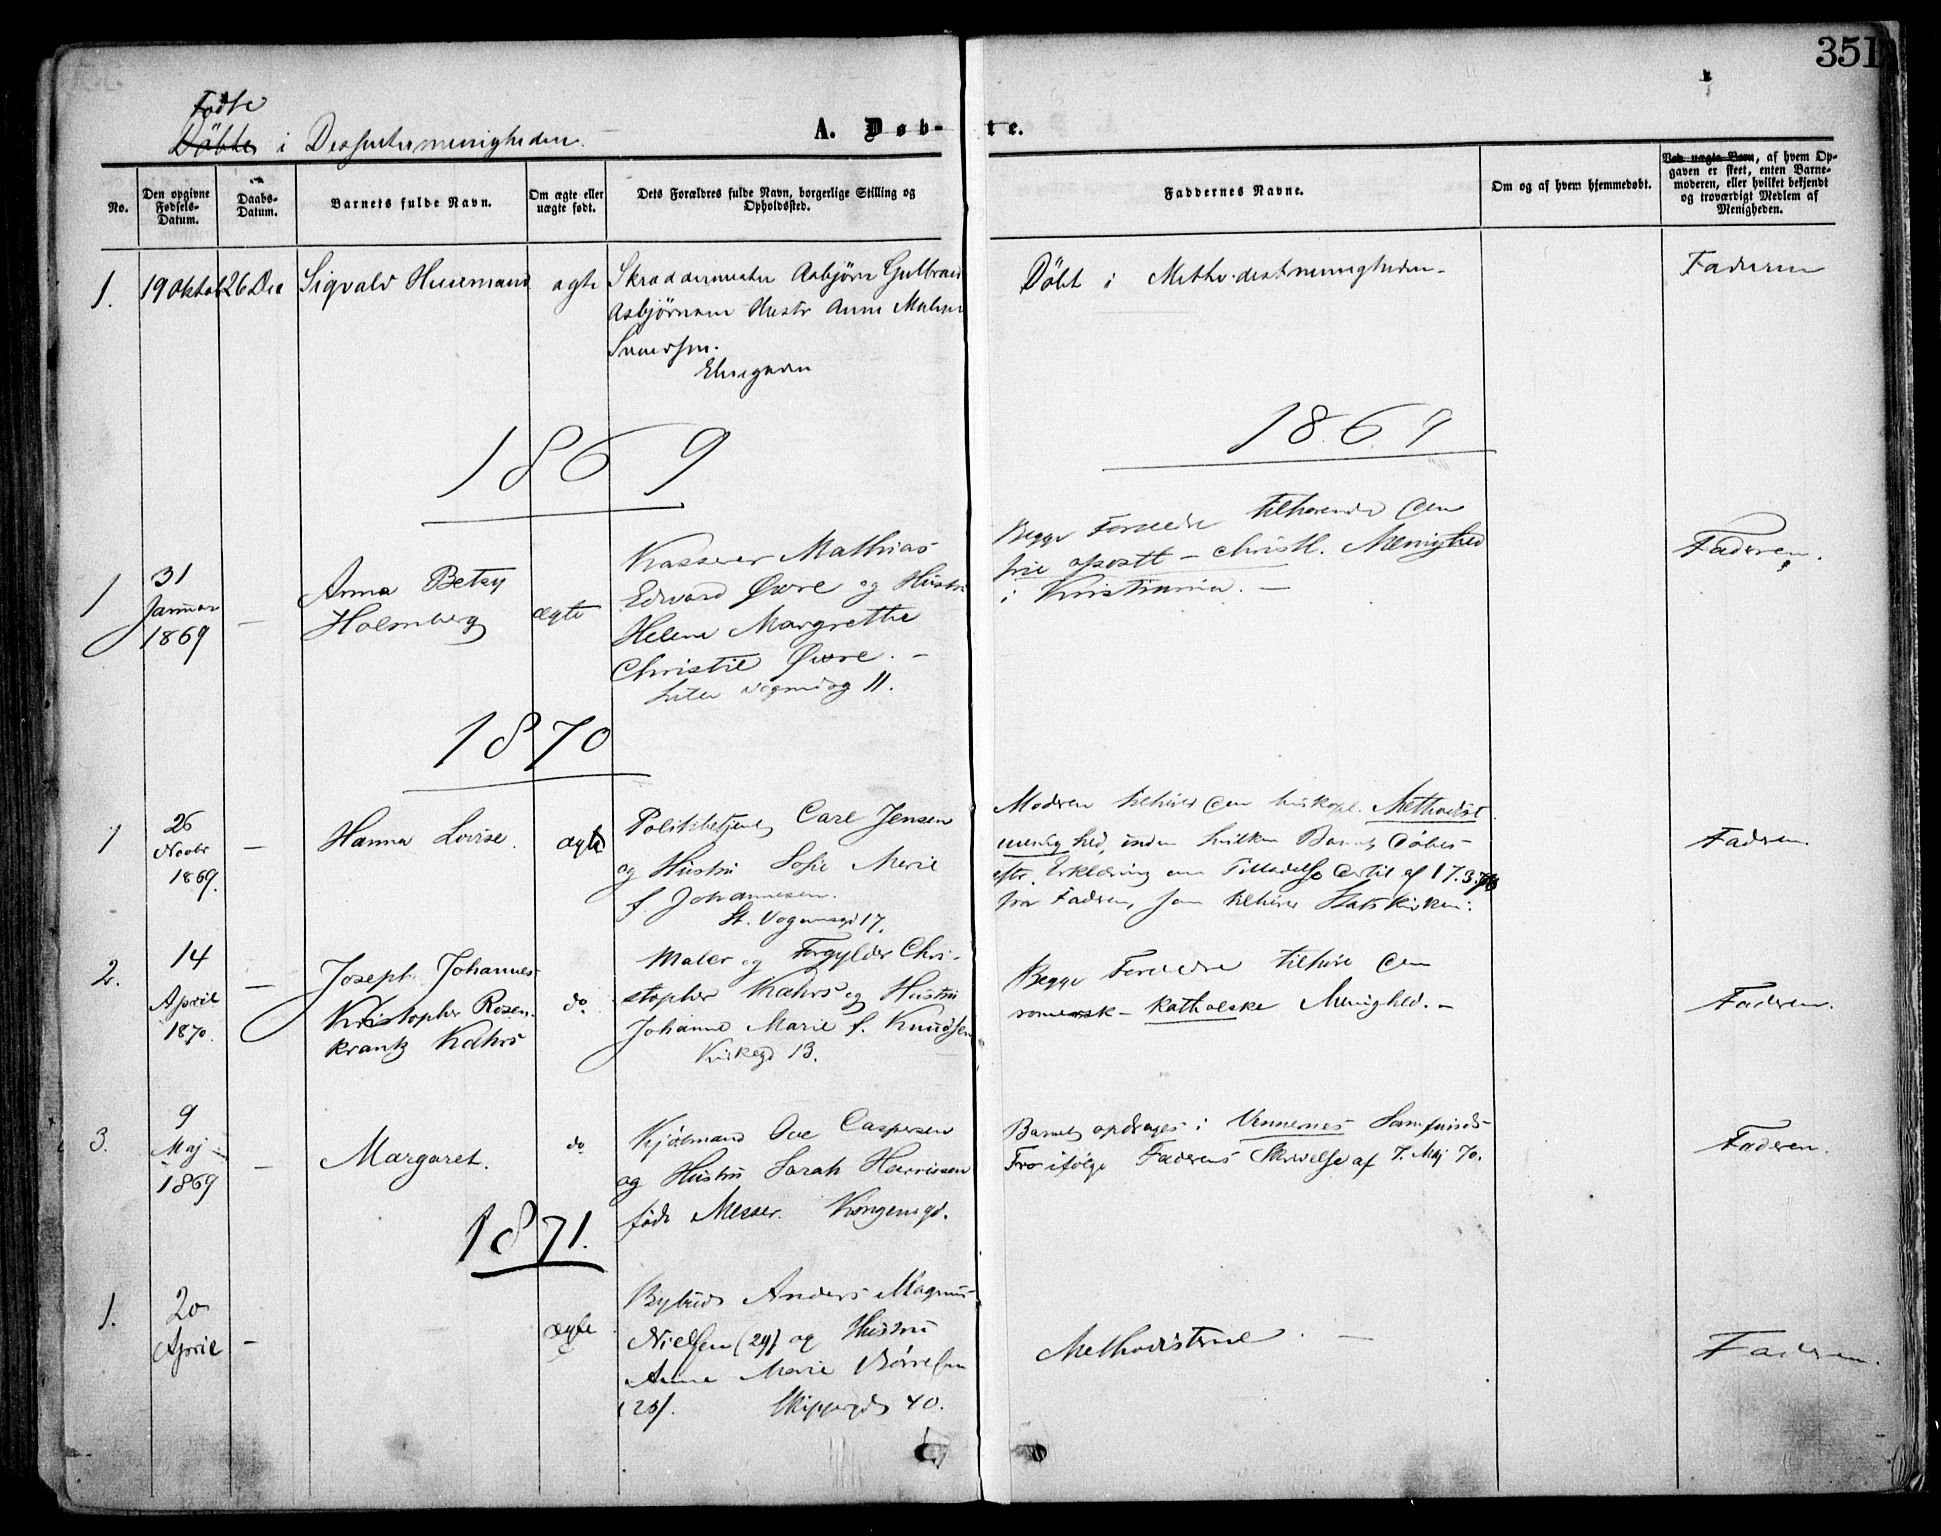 351
Födte
Döbte i Dissentermenigheden.
A. Døb- te.
No.
Den opgivne Fødsels-Datum.
Daabs-Datum.
Barnets fulde Navn.
Om ægte eller uægte født.
Dets Forældres fulde Navn, borgerlige Stilling og Opholdssted.
Faddernes Navne.
Om og af hvem hjemmedøbt.
Ved uægte Børn, af hvem Opgaven er skeet, enten Barnemoderen, eller hvilket bekjendt og troværdigt Medlem af Menigheden.
1.
19 Oktob
26 Dec
Sigvald
ægte
Skræddermester Asbjörn Gulbrand
Asbjørnsen Hustr Anne
Svendsen.
Döbt i Methodistmenigheden
Faderen
1869
1869
1
31
Januar
1869
—
Anna Betzy
Holmberg
ægte
Kasserer Mathias
Edvard Øvre og Hustru
Helene Margrethe
Christie Øvre. —
11.
Begge Forældre tilhørende den
frie apostl – christl. Menighed
i Kristiania. —
Faderen.
1870
1
26
Novbr
1869.
—
Hanna Lovise.
ægte
Politibetjent Carl Jensen
og Hustru Sofie Marie
f Johannesen.
St. Vognmsgd 17.
Moderen tilhører den biskopl. Methodist
menighed, inden hvilken Barnet döbes
eftr. Erklæring om Tilladelse dertil af 17.3.70
fra Faderen, som tilhører Statskirken.
Faderen.
2.
14
April
1870.
—
Joseph Johannes
Kristopher Rosen-
krantz Kahrs
do
Maler og Forgylder Chri-
stopher Kahrs og Hustru
Johanne Marie f. Knudsen
Kirkegd 13.
Begge Forældre tilhöre den
romersk – katholske Menighed. —
Faderen.
3.
9
Maj
1869
—
Margaret.
do
Kjøbmand Ove Caspersen
og Hustru Sarah
födt Messer. Kongensgd.
Barnet opdrages i Vennernes Samfunds
Tro ifølge Faderens Skrivelse af 7. Maj 70.
Faderen.
1871.
1.
20
April
—
ægte
Bybud Anders Magnus
Nielsen (29) og Hustru
Anne Marie
Skippergd 40.
Methodisterne. —
Faderen.